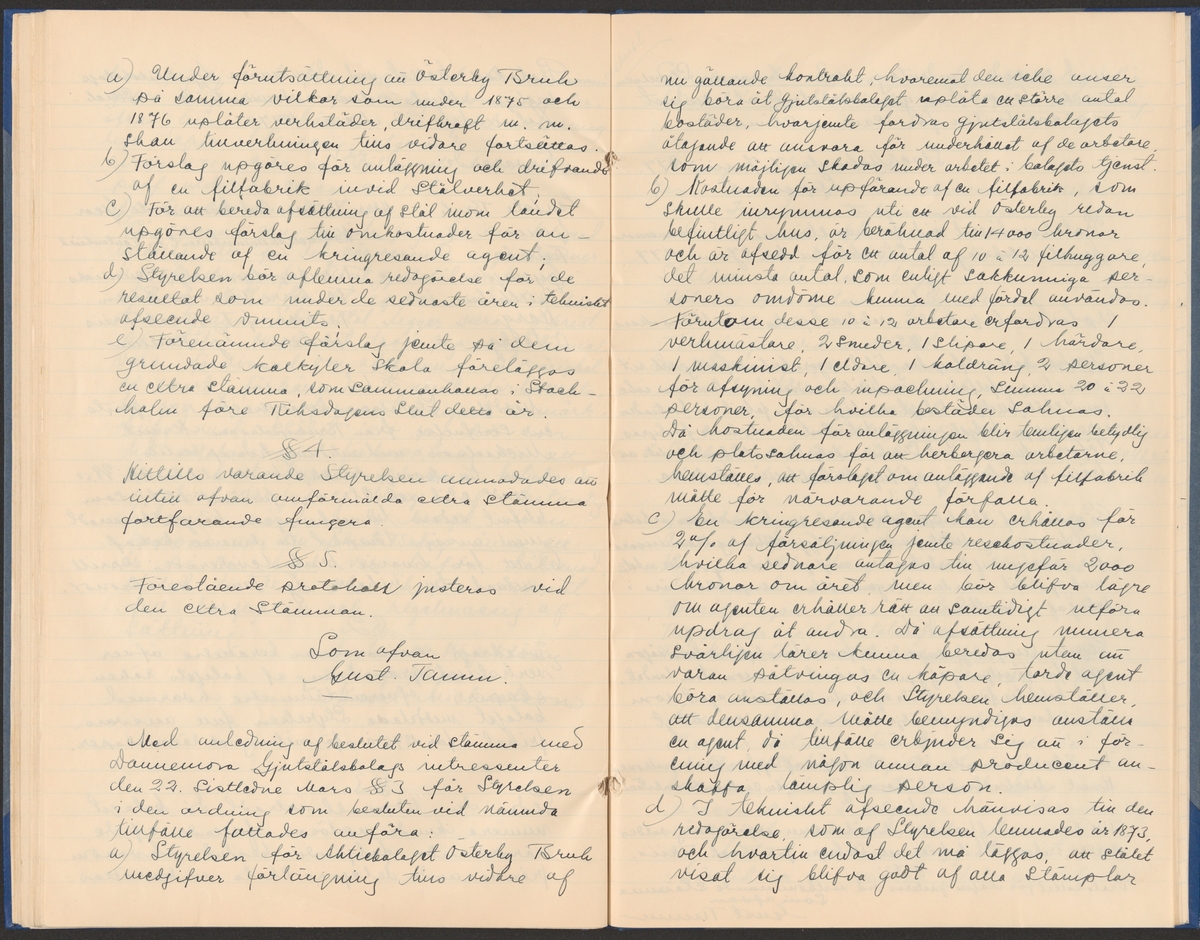 a) Under förutsättning att Österby Bruk
på samma vilkor som under 1875 och
1876 uplåter verkstäder, drifkraft m. m.
skall tillverkningen tills vidare fortsättas.
b) Förslag upgöres för anläggning och drifvande
af en filfabrik invid Stålverket;
c) För att bereda afsättning af stål inom landet
upgöres förslag till omkostnader för an-
ställande af en kringresande agent;
d) Styrelsen bör aflemna redogörelse för de
resultat som under de sednaste åren i tekniskt
afseende vunnits.
e) Förenämnde förslag jemte på dem
grundade kalkyler skola föreläggas
en extra stämma, som sammankallas i Stock-
holm före Riksdagens slut detta år.
§ 4.
Hittills varande Styrelsen anmodades att
intill ofvan omförmälda extra stämma
fortfarande fungera.
§ 5.
Förestående protokoll justeras vid
den extra Stämman.
Som ofvan
Gust. Tamm.
Med anledning af beslutet vid stämma med
Dannemora Gjutstålsbolags intressenter
den 22. sistledne Mars § 3 får Styrelsen
i den ordning som besluten vid nämnda
tillfälle fattades anföra:
a) Styrelsen för Aktiebolaget Österby Bruk
medgifver förlängning tills vidare af
nu gällande kontrakt, hvaremot den icke anser
sig böra åt Gjutstålsbolaget upplåta en större antal
bostäder, hvarjemte fordras Gjutstålsbolagets
åtagande att ansvara för underhållet af de arbetare,
som möjligen skadas under arbetet i bolagets tjenst.
b) Kostnaden för upförande af en filfabrik, som
skulle inrymmas uti ett vid Österby redan
befintligt hus, är beräknad till 14000 kronor
och är afsedd för ett antal af 10 à 12 filhuggare,
det minsta antal, som enligt sakkunniga per-
soners omdöme kunna med fördel användas.
Förutom desse 10 à 12 arbetare erfordras 1
verkmästare, 2 Smeder, 1 Slipare, 1 härdare,
1 maskinist, 1 eldare, 1 koldräng, 2 personer
för afsyning och inpackning, Summa 20 à 22
personer, för hvilka bostäder saknas.
Då kostnaden för anläggningen blir temligen betydlig
och plats saknas för att herbergera arbetarne,
hemställes, att förslaget om anläggande af filfabrik
måtte för närvarande förfalla.
c) En kringresande agent kan erhållas för
2% af försäljningen jemte resekostnader,
hvilka sednare antagas till ungefär 2000
kronor om året, men bör blifva lägre
om agenten erhåller rätt att samtidigt utföra
updrag åt andra. Då afsättning numera
svårligen lärer kunna beredas utan att
varan påtvingas en köpare, torde agent
böra anställas, och Styrelsen hemställer,
att densamma måtte bemyndigas anställa
en agent, då tillfälle erbjuder sig att i för-
ening med någon annan producent an-
skaffa lämplig person.
d) I tekniskt afseende hänvisas till den
redogörelse, som af Styrelsen lemnades år 1873,
och hvartill endast det må läggas, att stålet
visat sig blifva godt af alla stämplar